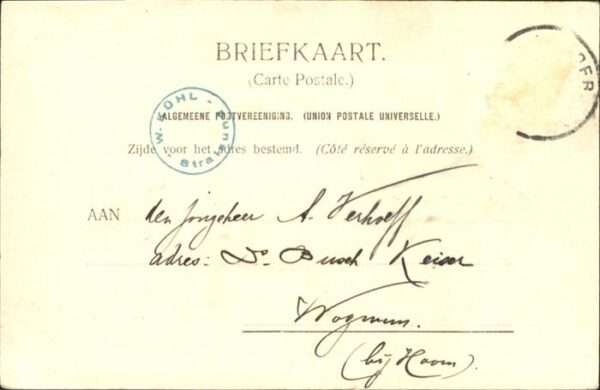 BRIEFKAART.
(Carte Postale.)
ALGEMEENE POSTVEREENIGING. (UNION POSTALE UNIVERSELLE.)
Zijde voor het adres bestemd. (Côté réservé à l'adresse.)
W. KOHL
AAN den jongeheer A. Verhoeff
adres: Ds. Busch Keiser
Wognum.
(bij Hoorn).